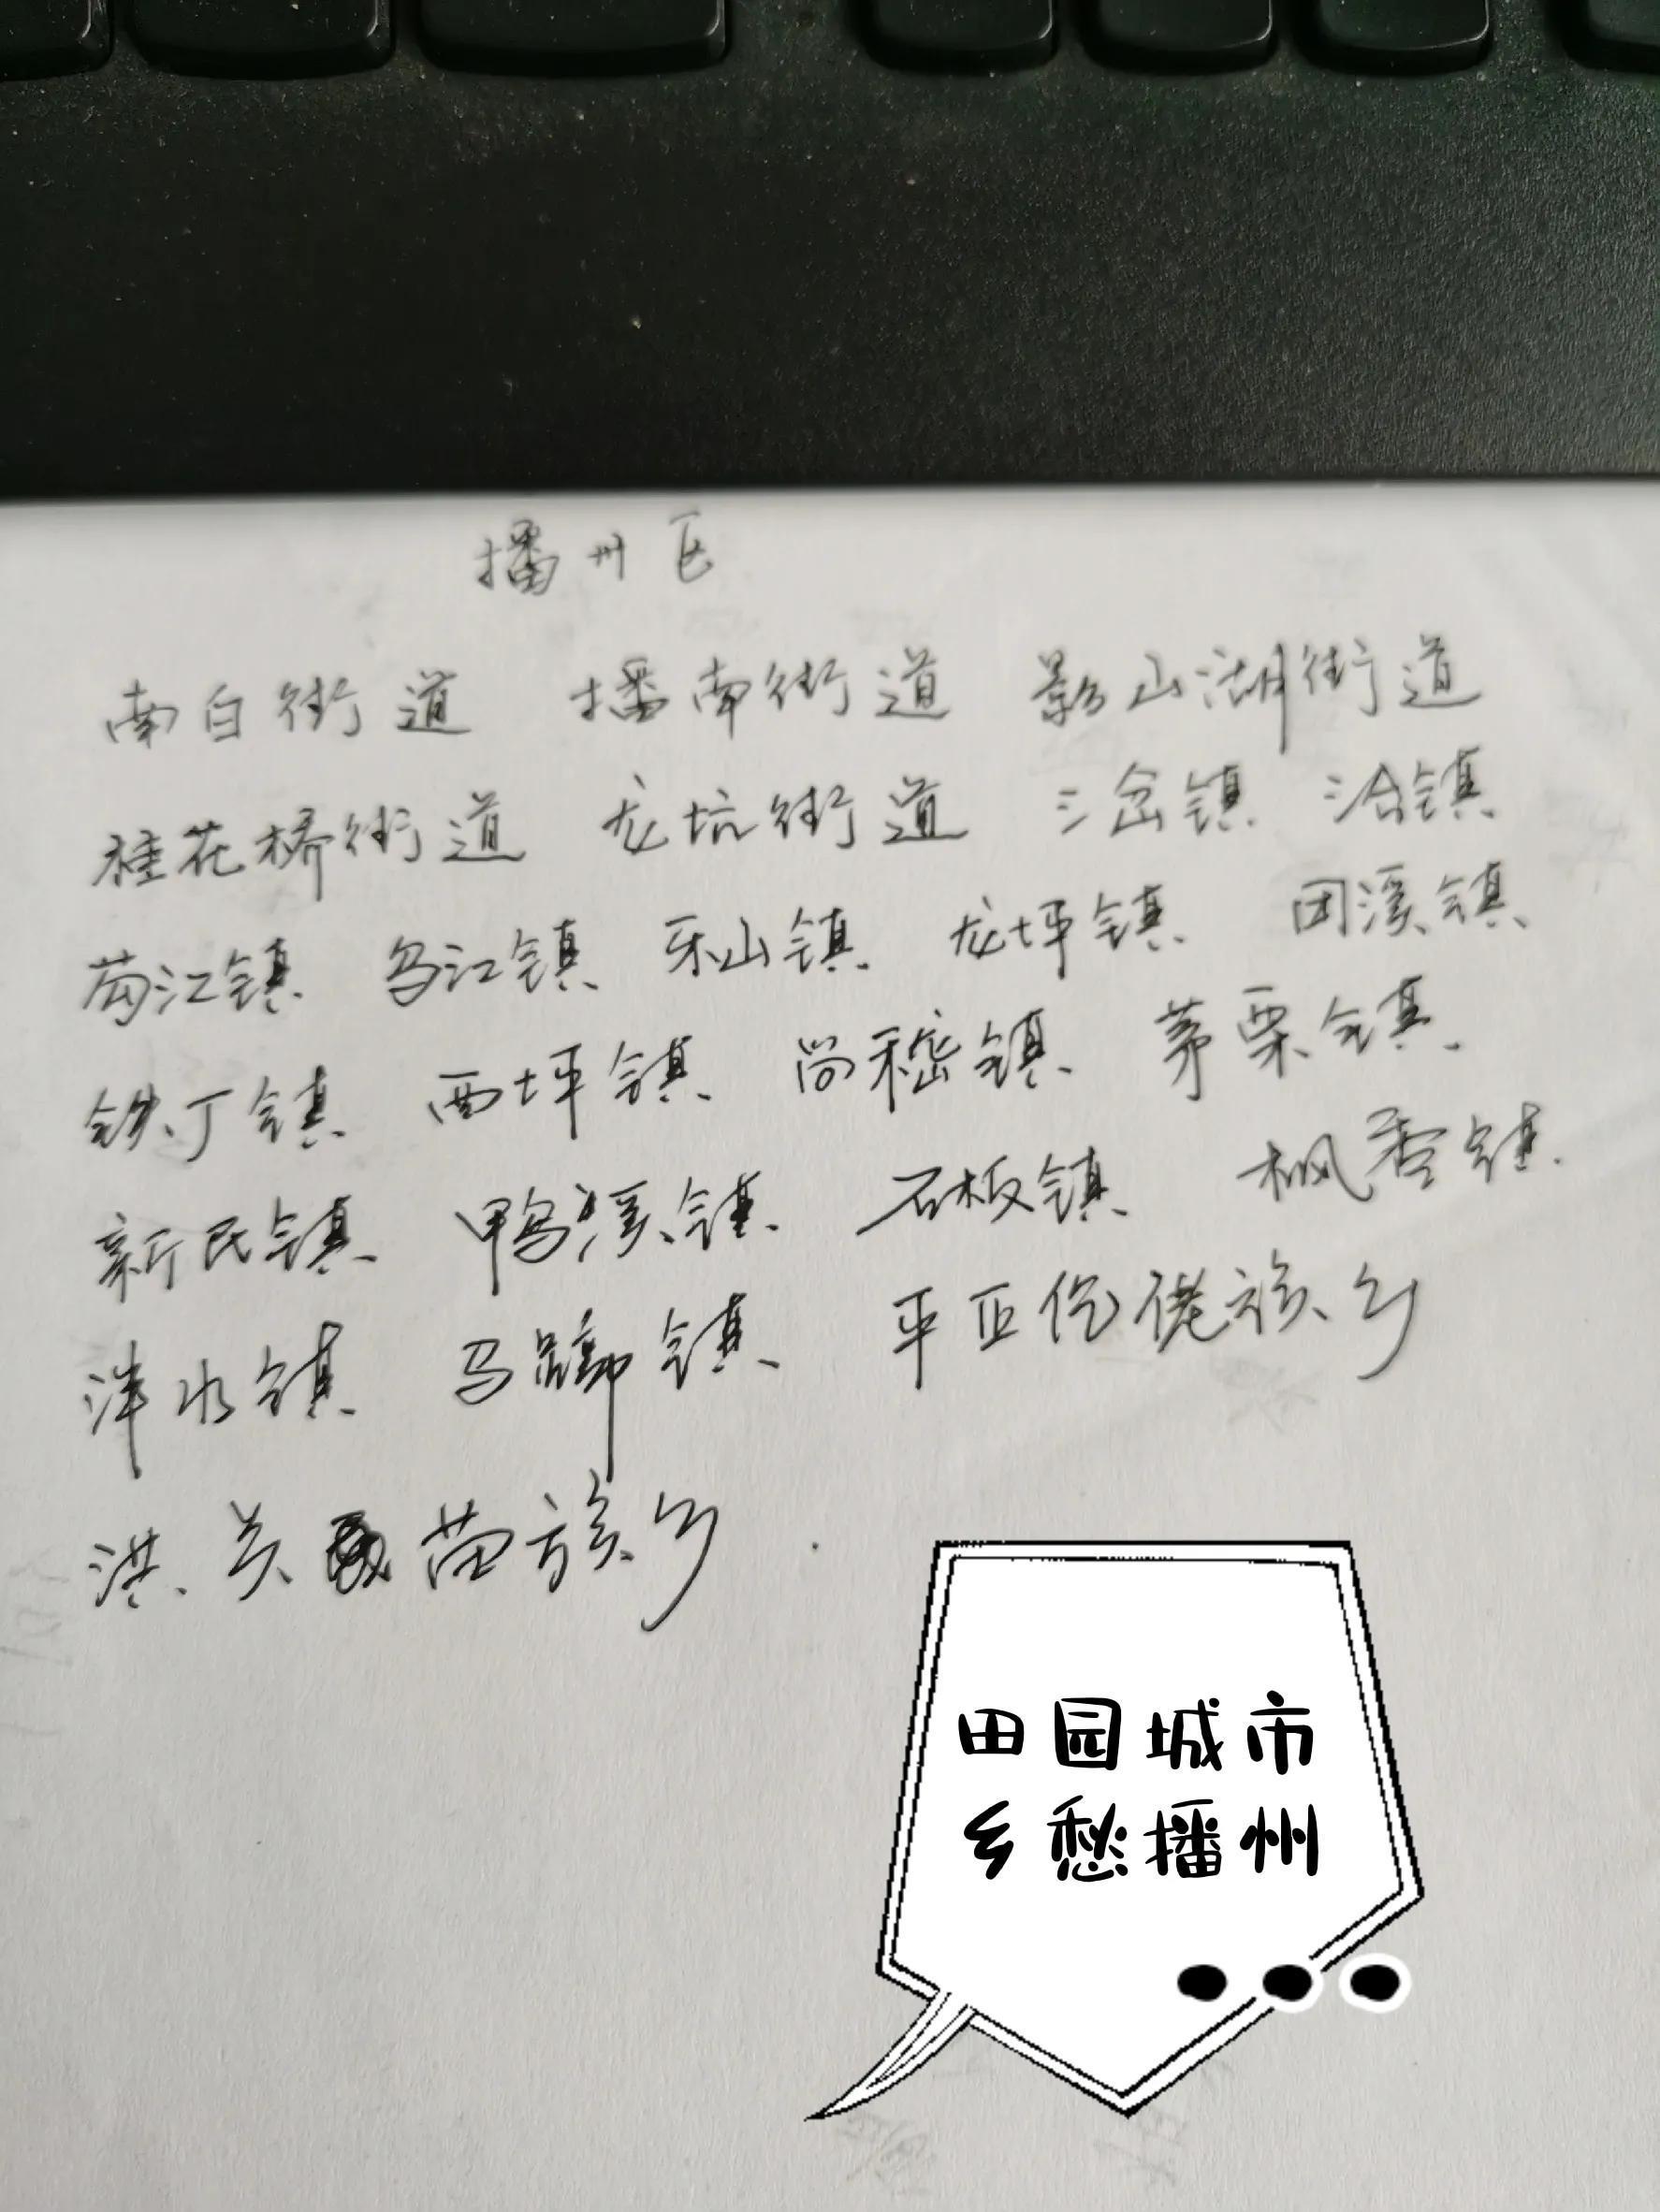 播州区
南白街道 播南街道 影山湖街道
桂花桥街道 龙坑街道 三岔镇 三合镇
苟江镇 乌江镇 乐山镇 龙坪镇 团溪镇
铁厂镇 西坪镇 尚嵇镇 茅栗镇
新民镇 鸭溪镇 石板镇 枫香镇
泮水镇 马蹄镇 平正仡佬族乡
洪关苗族乡
田园城市
乡愁播州